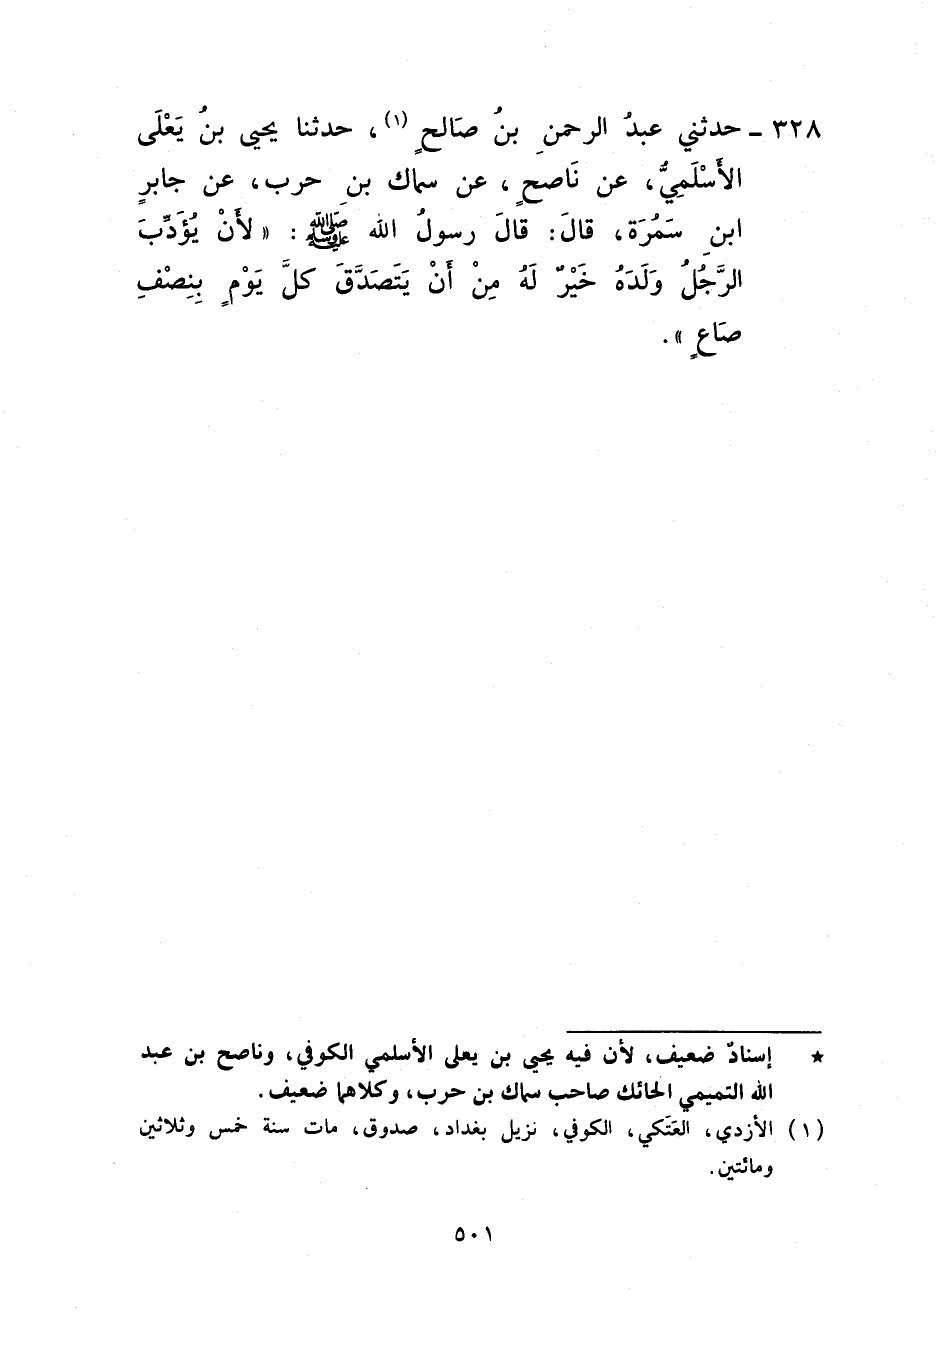 ٣٢٨ ـ حدثني عبدُ الرحمنِ بنُ صَالحٍ (١)، حدثنا يحيى بنُ يَعْلَى
الأَسْلَمِيُّ، عن نَاصحٍ، عن سماك بنِ حرب، عن جابرِ
ابنِ سَمُرَة، قالَ: قالَ رسولُ الله ﷺ: « لأَنْ يُؤَدِّبَ
الرَّجُلُ وَلَدَهُ خَيْرٌ لَهُ مِنْ أَنْ يَتَصَدَّقَ كلَّ يَوْمٍ بِنِصْفِ
صَاعٍ ».
★ إسنادٌ ضعيف، لأن فيه يحيى بن يعلى الأسلمي الكوفي، وناصح بن عبد
الله التميمي الحائك صاحب سماك بن حرب، وكلاهما ضعيف.
(١) الأزدي، العَتَكي، الكوفي، نزيل بغداد، صدوق، مات سنة خمس وثلاثين
ومائتين.
٥٠١